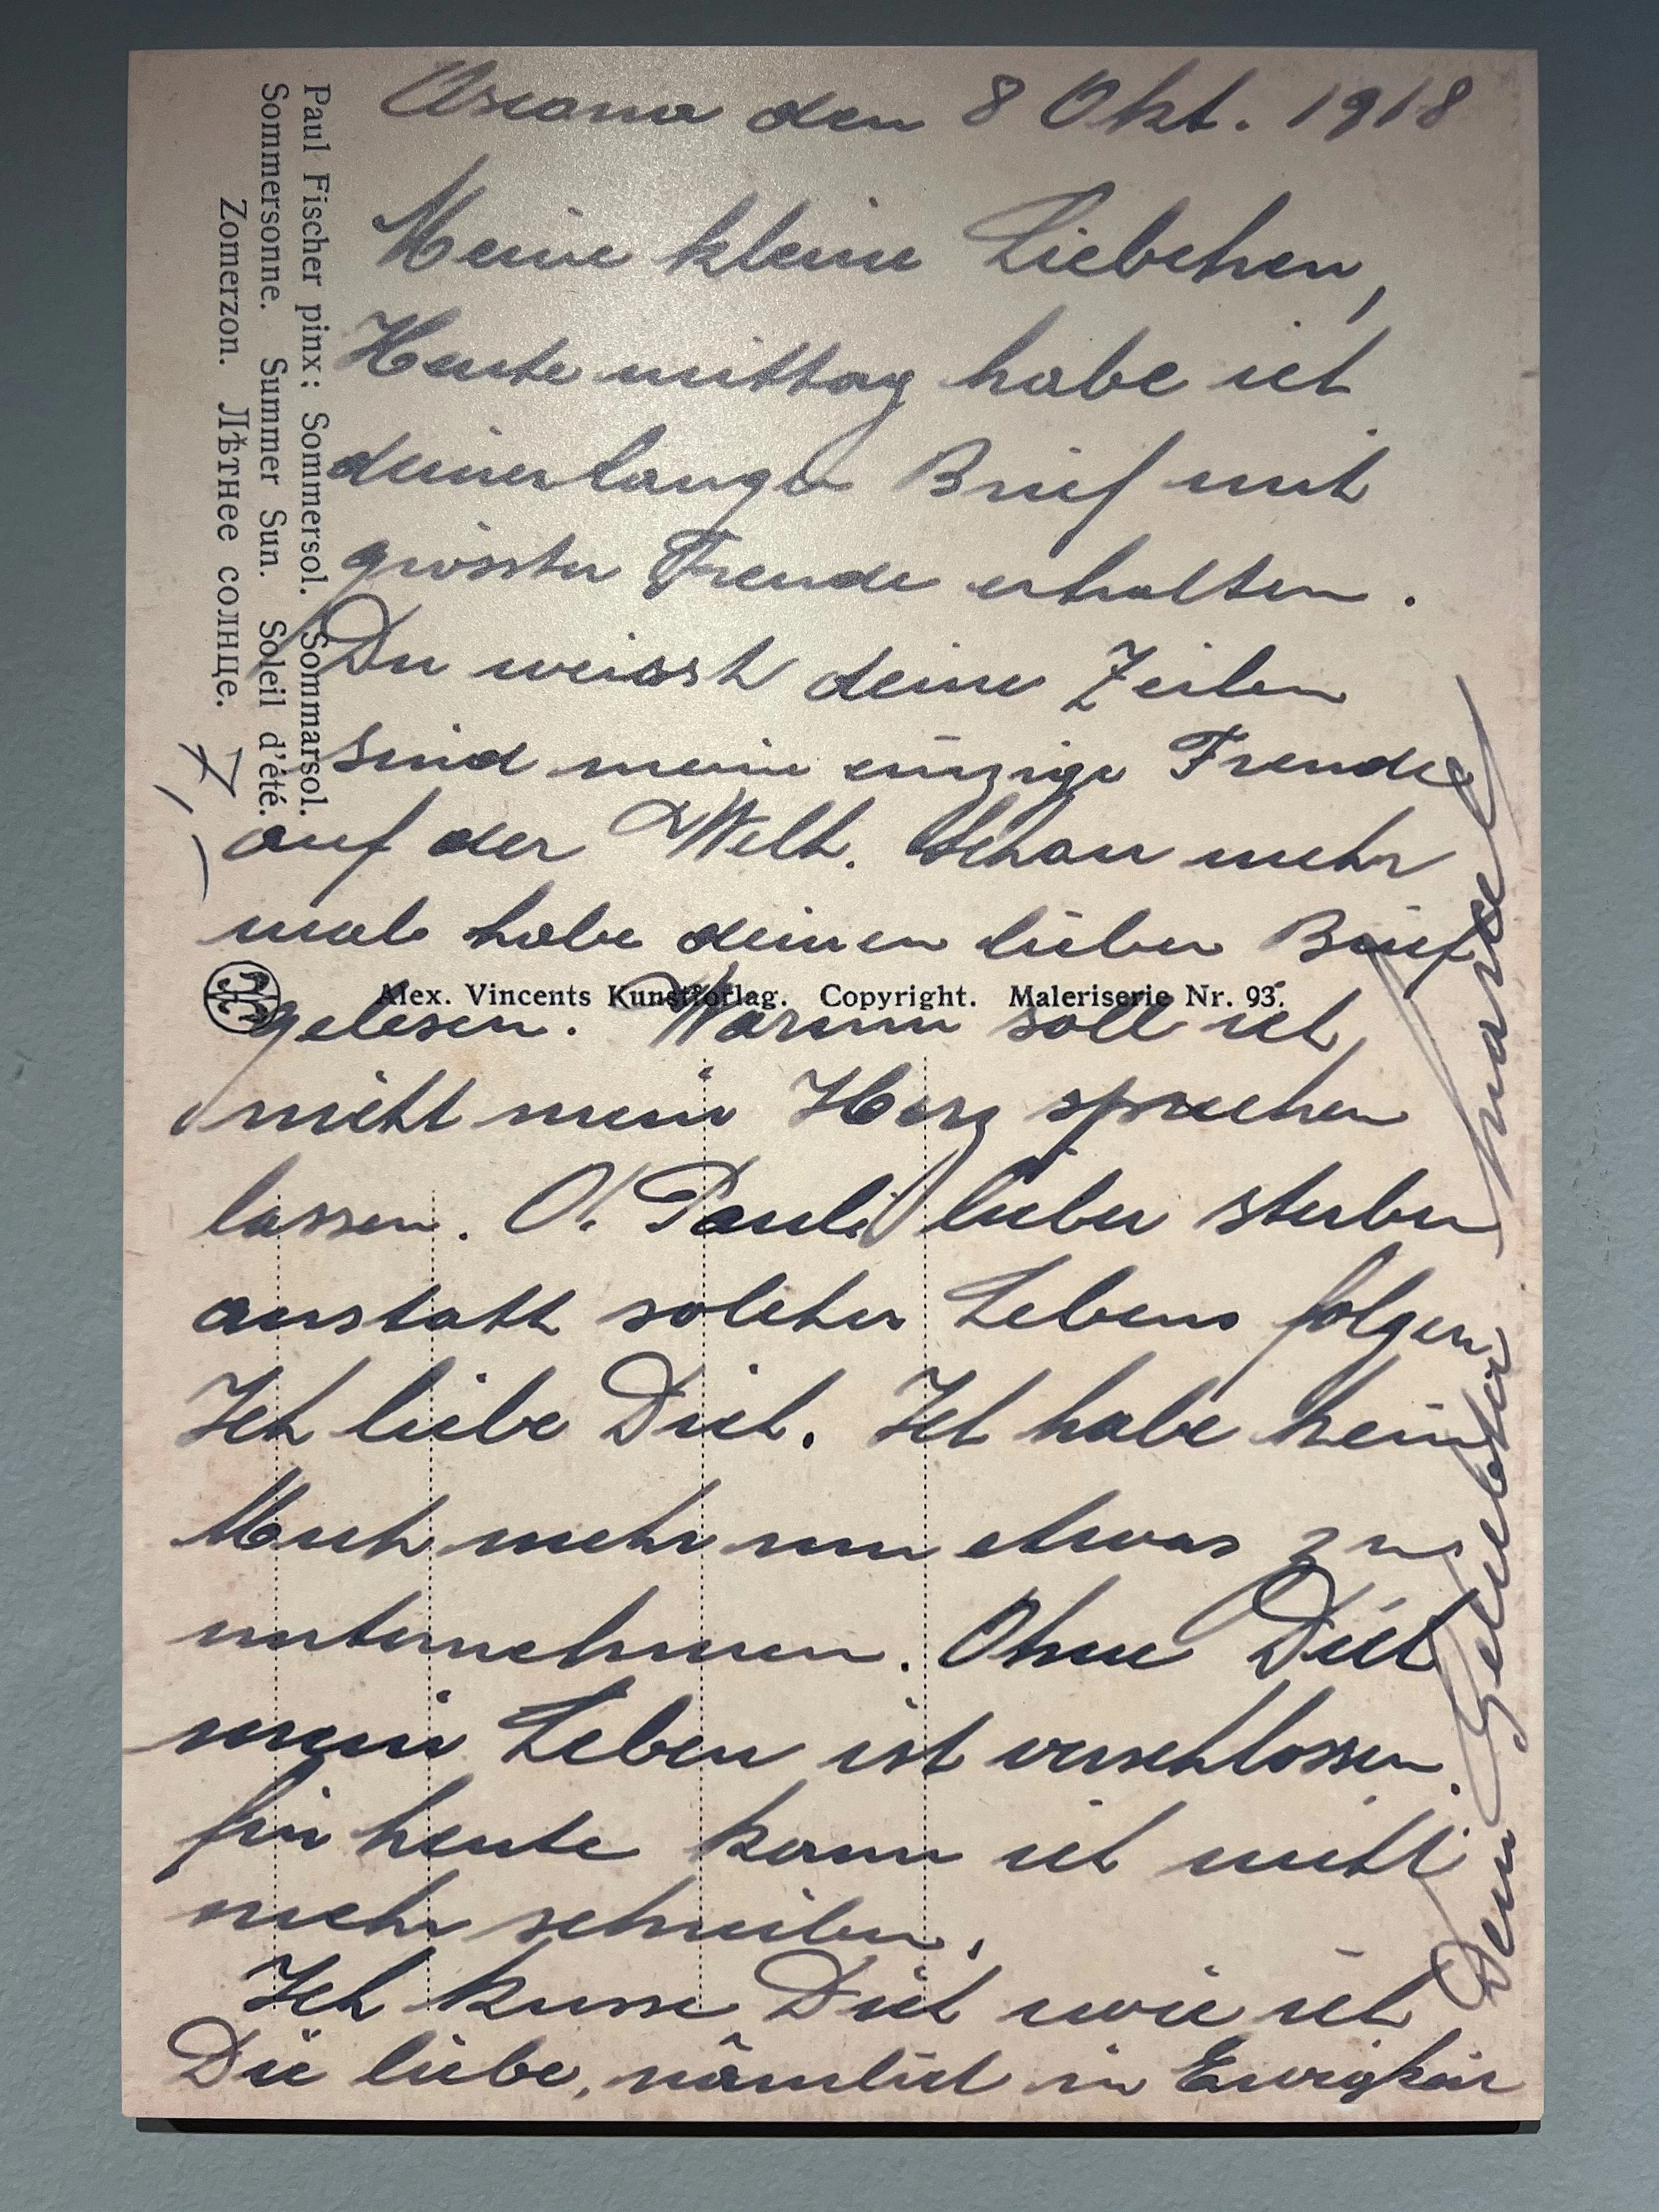 Ascona den 8 Okt. 1918
Meine kleine Liebchen,
Heute mittag habe ich
deinen langen Brief mit
grösster Freude erhalten.
Du weisst deine Zeilen
sind meine einzige Freude
auf der Welt. Schon mehr
mals habe deinen lieben Brief
gelesen. Warum soll ich
nicht mein Herz sprechen
lassen. O! Pauli lieber sterben
anstatt solcher Lebens folgen
Ich liebe Dich. Ich habe kein
Mueh mehr um etwas zu
unternehmen. Ohne Dich
mein Leben ist verschlossen.
für heute kann ich nicht
mehr schreiben.
Ich kusse Dich wie ich
Die liebe, nämlich in Ewigkeit
Dein Geliebter
Paul Fischer pinx: Sommersol. Sommarsol.
Sommersonne. Summer Sun. Soleil d'été.
Zomerzon. Лѣтнее солнце.
Alex. Vincents Kunstforlag. Copyright. Maleriserie Nr. 93.